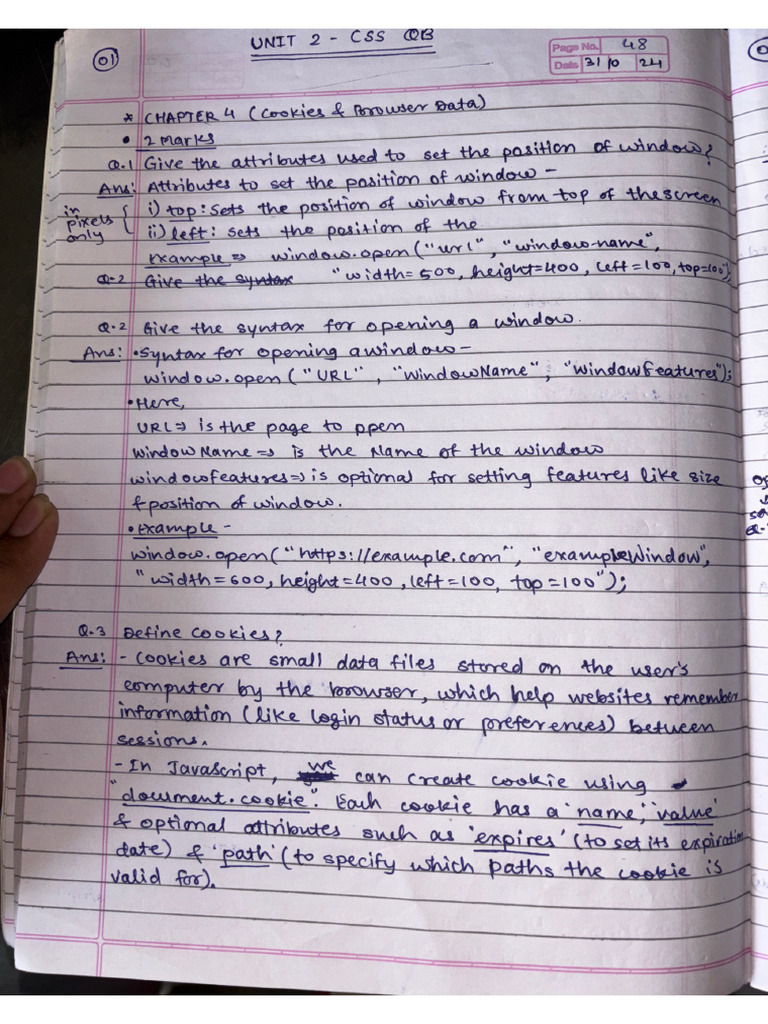 01
UNIT 2 - CSS QB
Page No. 48
Date 31 10 24
* CHAPTER 4 (Cookies & Browser Data)
• 2 Marks
Q.1 Give the attributes used to set the position of window?
Ans: Attributes to set the position of window -
in pixels only { i) top: Sets the position of window from top of the screen
ii) left: sets the position of the
Example => window.open("url", "window-name",
"width=500, height=400, left=100, top=100");
Q.2 Give the syntax
Q.2 Give the syntax for opening a window.
Ans: • Syntax for opening a window -
window.open ("URL", "WindowName", "WindowFeatures");
• Here,
URL => is the page to ppen
Window Name => is the Name of the window
windowfeatures => is optional for setting features like size
& position of window.
• Example -
window.open("https://example.com", "exampleWindow",
"width=600, height=400, left=100, top=100");
Q.3 Define Cookies?
Ans: - Cookies are small data files stored on the user's
computer by the browser, which help websites remember
information (like login status or preferences) between
sessions.
- In JavaScript, we can create cookie using
"document.cookie". Each cookie has a 'name', 'value'
& optional attributes such as 'expires' (to set its expiration
date) & 'path' (to specify which paths the cookie is
valid for).